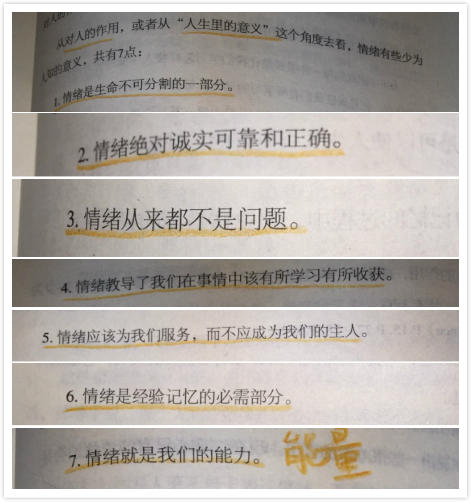 从对人的作用，或者从“人生里的意义”这个角度去看，情绪有些少为
人知的意义，共有7点：
1. 情绪是生命不可分割的一部分。
2. 情绪绝对诚实可靠和正确。
3. 情绪从来都不是问题。
4. 情绪教导了我们在事情中该有所学习有所收获。
5. 情绪应该为我们服务，而不应成为我们的主人。
6. 情绪是经验记忆的必需部分。
7. 情绪就是我们的能力。 能量